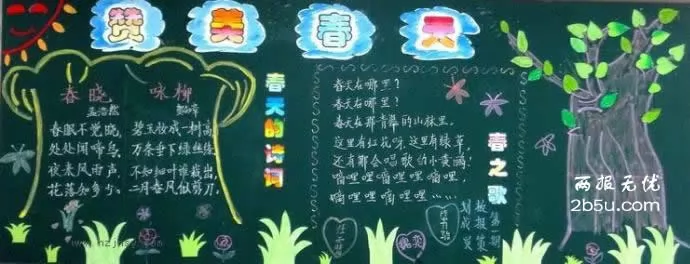 赞美春天
春晓
孟浩然
春眠不觉晓，
处处闻啼鸟。
夜来风雨声，
花落知多少。
咏柳
贺知章
碧玉妆成一树高，
万条垂下绿丝绦。
不知细叶谁裁出，
二月春风似剪刀。
春天的诗词
春天在哪里？
春天在哪里？
春天在那青翠的山林里，
这里有红花呀，这里有绿草，
还有那会唱歌的小黄鹂
嘀哩哩嘀哩嘀哩哩，
嘀哩哩嘀哩哩……
春之歌
第一期
板报策
划成员
两报无优
2b5u.com